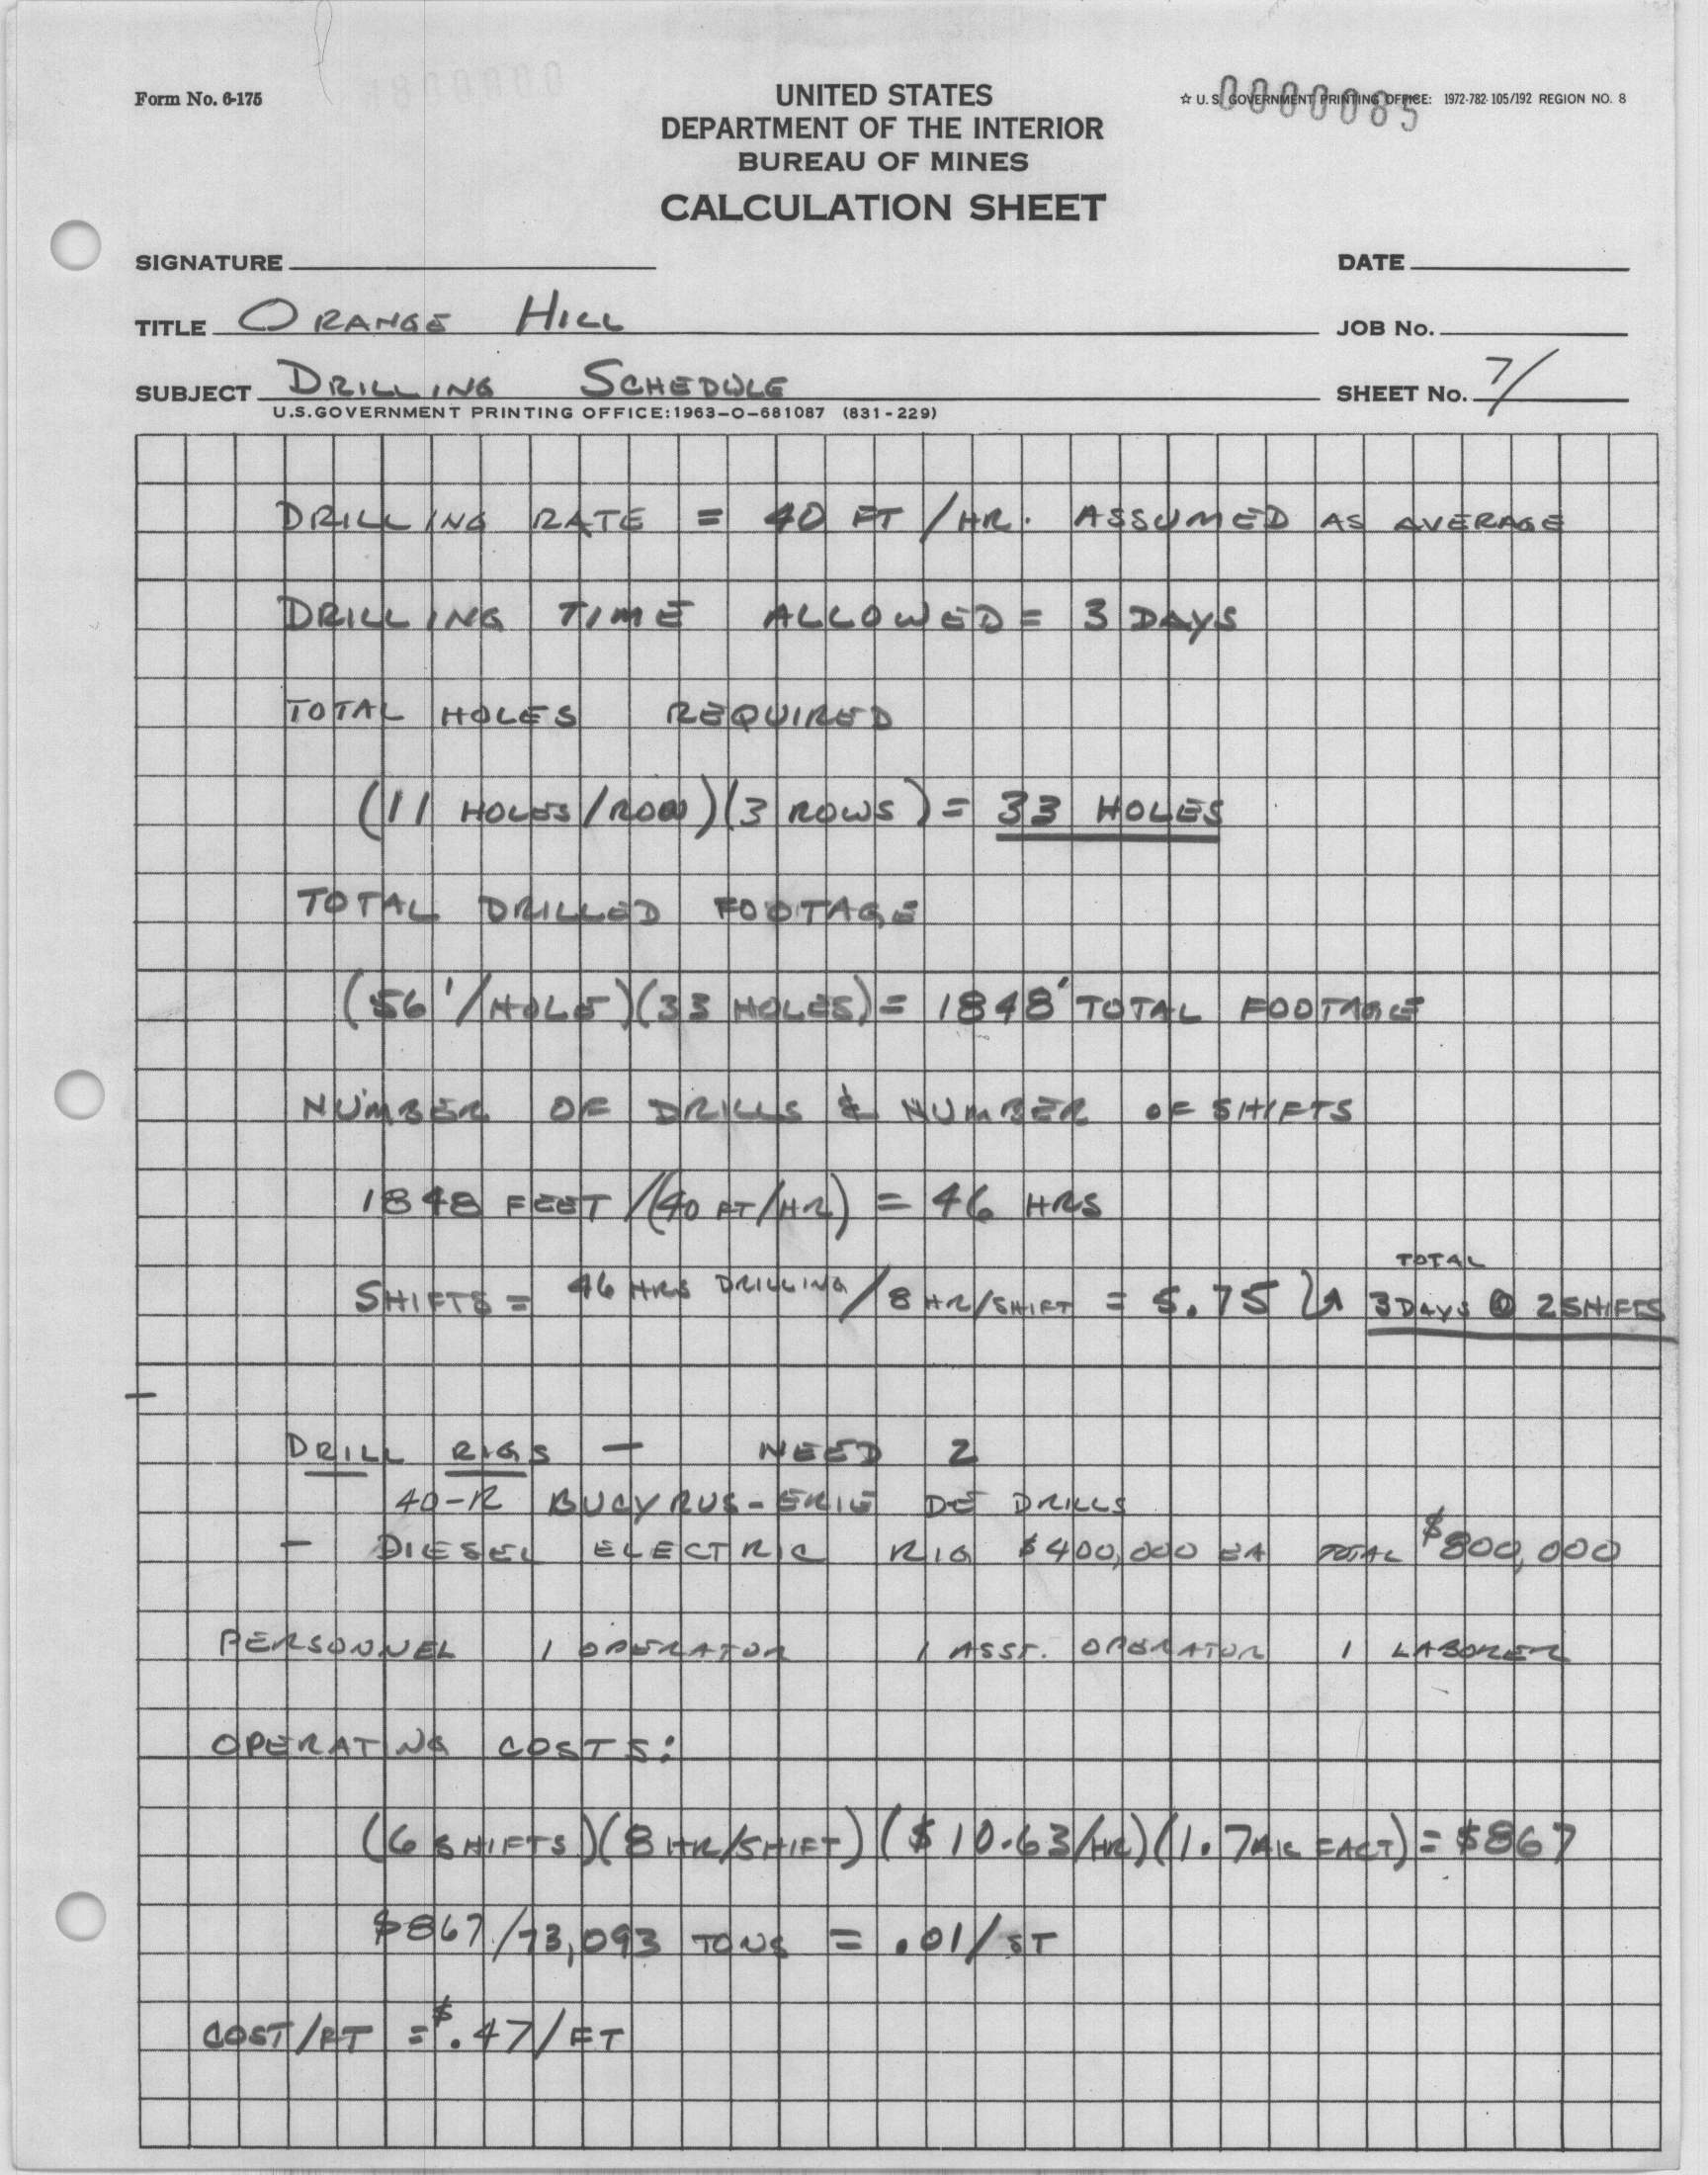 Form No. 6-175
UNITED STATES
DEPARTMENT OF THE INTERIOR
BUREAU OF MINES
CALCULATION SHEET
☆ U.S. GOVERNMENT PRINTING OFFICE: 1972-782-105/192 REGION NO. 8
0000085
SIGNATURE
DATE
TITLE ORANGE HILL
JOB No.
SUBJECT DRILLING SCHEDULE
SHEET No. 7/
U.S.GOVERNMENT PRINTING OFFICE:1963-O-681087 (831-229)
DRILLING RATE = 40 FT/HR. ASSUMED AS AVERAGE
DRILLING TIME ALLOWED = 3 DAYS
TOTAL HOLES REQUIRED
(11 HOLES/ROW)(3 ROWS) = 33 HOLES
TOTAL DRILLED FOOTAGE
(56'/HOLE)(33 HOLES) = 1848' TOTAL FOOTAGE
NUMBER OF DRILLS & NUMBER OF SHIFTS
1848 FEET/(40 FT/HR) = 46 HRS
SHIFTS = 46 HRS DRILLING/8 HR/SHIFT = 5.75 TOTAL 3 DAYS @ 2 SHIFTS
DRILL RIGS — NEED 2
40-R BUCYRUS-ERIE DE DRILLS
— DIESEL ELECTRIC RIG $400,000 EA TOTAL $800,000
PERSONNEL 1 OPERATOR 1 ASST. OPERATOR 1 LABORER
OPERATING COSTS:
(6 SHIFTS)(8 HR/SHIFT)($10.63/HR)(1.7 AK FACT) = $867
$867/73,093 TONS = .01/ST
COST/FT = $.47/FT